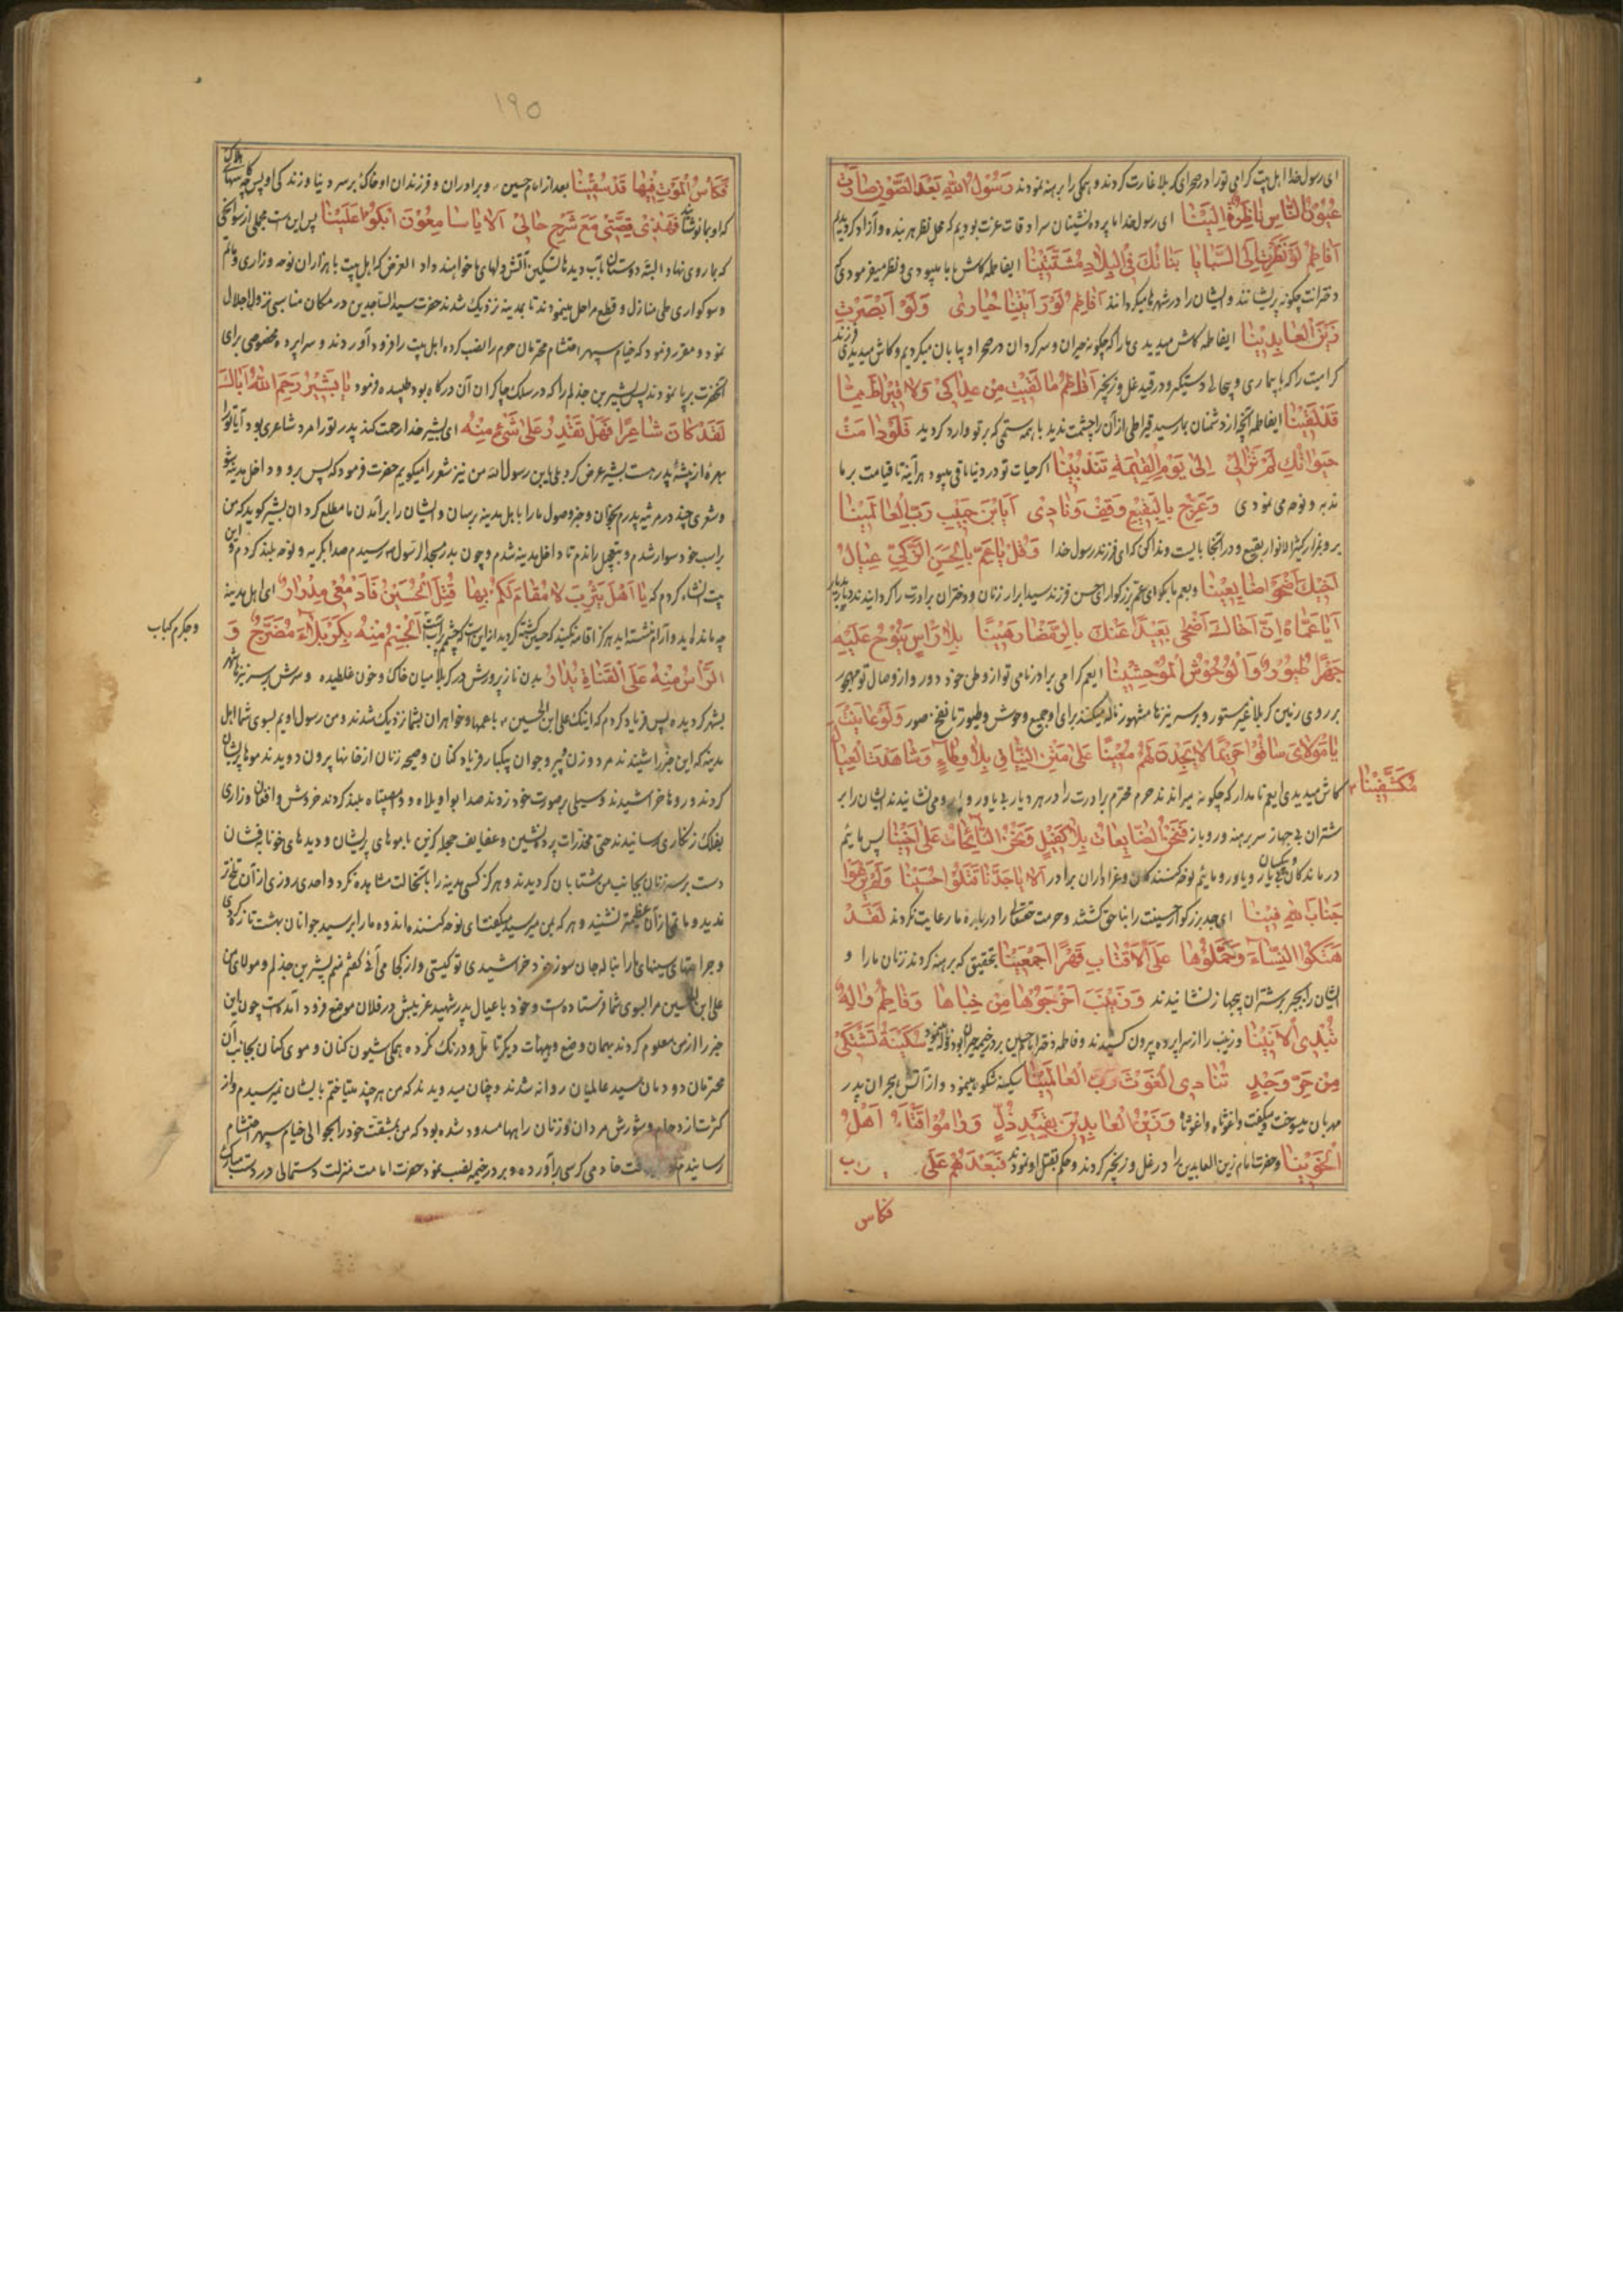 ای رسول خدا اهل بیت کرامی تو را در صحرای کربلا غارت کردند و همکی را برهنه نمودند رَسُولَ اللهِ بَعْدَ الصَّوْنِ صَارَتْ
عُیُونُ النَّاسِ نَاظِرَةً اِلَیْنَا ای رسول خدا ما پرده نشینان سرادقات عزت بودیم که محل نظر هر بنده و آزاد کردیدیم
اَفَاطِمُ لَوْ نَظَرْتِ اِلَی السَّبَایَا بَنَاتُكِ فِی الْبِلَادِ مُشَتَّتِینَا ایفاطمه کاش ما با میبودی و نظر میفرمودی که
دخترانت چکونه پریشانند و ایشان را در شهرها میکردانند اَفَاطِمُ لَوْ رَاَیْتِینَا حَیَارٰی وَلَوْ اَبْصَرْتِ
زَیْنَ الْعَابِدِینَا ایفاطمه کاش میدیدی ما را که چکونه حیران و سرکردان در صحرا و بیابان میکردیم و کاش میدیدی فرزند
کرامیت را که با بیماری و بیحالی دستکیر و در قید غل و زنجیر اَفَاطِمُ مَا لَقِیتِ مِنْ عِدَاکِی وَلَا قِیرَاطَ مِمَّا
قَدْ لَقِینَا ایفاطمه آنچه از دشمنان بما رسید قیراطی از آن را چشمت ندید با همه ستمی که بر تو وارد کردید فَلَوْ دَامَتْ
حَیَوٰتُكِ لَمْ تَزَالِی اِلٰی یَوْمِ الْقِیٰمَةِ تَنْدُبِینَا اکر حیات تو در دنیا باقی میبود هر آینه تا قیامت بر ما
ندبه و نوحه می نمودی وَعَرِّجْ بِالْبَقِیعِ وَقِفْ وَنَادِی اَیَابْنَ حَبِیبِ رَبِّ الْعَالَمِینَا
برو بمزار کثیر الانوار بقیع و در آنجا بایست و ندا کن که ای فرزند رسول خدا وَقُلْ یَا عَمِّ یَا الْحَسَنَ الزَّکِیَّ عِیَالُ
اَخِیكَ اَضْحَوْا ضَایِعِینَا و بعم ما بکو ای عم بزرکوار ای حسن فرزند سید ابرار زنان و دختران برادرت را کردانیدند دیار بدیار
اَیَا عَمَّاهُ اِنَّ اَخَاكَ اَضْحٰی بَعِیدًا عَنْكَ بِالرَّمْضَا رَهِینًا بِلَا رَاْسٍ تَنُوحُ عَلَیْهِ
جَهْرًا طُیُورٌ وَالْوُحُوشُ الْمُوحِشِینَا ایعم کرامی برادر نامی تو از وطن خود دور و از وصال تو مهجور
بر روی زمین کربلا غیر مستور و بر سر نیزها مشهور ناله میکنند برای او جمیع وحوش و طیور تا نفخ صور وَلَوْ عَایَنْتَ
یَا مَوْلَایَ سَاقُوا حَرِیمًا لَا یَجِدْنَ لَهُمْ مُعِینًا عَلٰی مَتْنِ النِّیَاقِ بِلَا وِطَاءٍ وَشَاهَدْتَ الْعِیَالَ
مُکَشَّفِینَا
کاش میدیدی ایعم نامدار که چکونه میراندند حرم محترم برادرت را در هر دیار بی یاور و می نشانیدند ایشان را بر
شتران بی جهاز سر برهنه و رو باز فَنَحْنُ الضَّایِعَاتُ بِلَا کَفِیلٍ وَنَحْنُ النَّایِحَاتُ عَلٰی اَخِینَا پس مائیم
درماندکان بی یار و یاور و مائیم نوحه کنندکان و عزاداران برادر اَلَا یَا جَدَّنَا قَتَلُوا حُسَیْنًا وَلَمْ یَرْعَوْا
جَنَابَ اللهِ فِینَا ای جد بزرکوار حسینت را بناحق کشتند و حرمت حقتعالی را درباره ما رعایت نکردند لَقَدْ
هَتَکُوا النِّسَاءَ وَحَمَّلُوهَا عَلَی الْاَقْتَابِ قَهْرًا اَجْمَعِینَا بتحقیق که برهنه کردند زنان ما را و
ایشان را بجبر بر شتران بیجهاز نشانیدند وَزَیْنَبَ اَخْرَجُوهَا مِنْ خِبَاهَا وَفَاطِمُ وَالِهٌ
تُبْدِی الْاَنِینَا و زینب را از سراپرده بیرون کشیدند و فاطمه دختر امام حسین سَکِینَةُ تَشْتَکِی
مِنْ حَرِّ وَجْدٍ تُنَادِی الْغَوْثَ رَبَّ الْعَالَمِینَا سکینه شکوه مینمود و از آتش هجران پدر
مهربان میسوخت و میکفت واغوثاه واغوثاه وَزَیْنُ الْعَابِدِینَ بِقَیْدِ ذُلٍّ وَرَامُوا قَتْلَهُ اَهْلُ
الْخَؤُنَا و حضرت امام زین العابدین را در غل و زنجیر کردند و حکم بقتل او نمودند فَبَعْدَهُمْ عَلَی
فکاس
۱۹۵
فَکَاْسُ الْمَوْتِ فِیهَا قَدْ سُقِینَا بعد از امام حسین و برادران و فرزندان او خاک بر سر دنیا و زندکی او پس کاسهای هلاک
که او بما نوشانید فَهٰذِی قِصَّتِی مَعَ شَرْحِ حَالِی اَلَا یَا سَامِعُونَ ابْکُوا عَلَیْنَا پس این است مجملی از سوانحی
که بما روی نهاد البته دوستان بآب دیدها تسکین آتش دلهای ما خواهند داد الغرض که اهل بیت با هزاران نوحه و زاری و ماتم
و سوکواری طی منازل و قطع مراحل مینمودند تا بمدینه نزدیک شدند حضرت سید الساجدین در مکان مناسبی نزول اجلال
نمود و مقرر فرمود که خیام سپهر احتشام محترمان حرم را نصب کرده اهل بیت را فرود آوردند و سراپرده مخصوصی برای
آنحضرت برپا نمودند پس بشیر بن جذلم را که در سلک چاکران آن درکاه بود طلبیده فرمود یَا بَشِیرُ رَحِمَ اللهُ اَبَاكَ
لَقَدْ کَانَ شَاعِرًا فَهَلْ تَقْدِرُ عَلٰی شَیْءٍ مِنْهُ ای بشیر خدا رحمت کند پدر تو را مرد شاعری بود آیا تو را
بهره از پیشه پدر هست بشیر عرض کرد بلی یابن رسول الله من نیز شعر را میکویم حضرت فرمود که پس برو و داخل مدینه شو
و شعری چند در مرثیه پدرم بخوان و خبر وصول ما را باهل مدینه برسان و ایشان را بر آمدن ما مطلع کردان بشیر کوید که من
بر اسب خود سوار شدم و بتعجیل راندم تا داخل مدینه شدم و چون بدر مسجد رسول رسیدم صدا بکریه و نوحه بلند کردم و این
بیت انشاء کردم که یَا اَهْلَ یَثْرِبَ لَا مُقَامَ لَکُمْ بِهَا قُتِلَ الْحُسَیْنُ فَاَدْمُعِی مِدْرَارٌ ای اهل مدینه
چه مانده اید و آرام نشسته اید هرکز اقامه نکنید که حسین کشته کردید از این است که چشمم پرآبست اَلْجِسْمُ مِنْهُ بِکَرْبَلَاءَ مُضَرَّجٌ وَ
و جکرم کباب
الرَّاْسُ مِنْهُ عَلَی الْقَنَاةِ یُدَارُ بدن ناز پرورش در کربلا میان خاک و خون غلطیده و سرش بر سر نیزها شهر
بشهر کردیده پس فریاد کردم که اینک علی ابن الحسین با عمها و خواهران بشما نزدیک شدند و من رسول اویم بسوی شما اهل
مدینه که این خبر را شنیدند مرد و زن پیر و جوان بیکبار فریاد کنان و صیحه زنان از خانها بیرون دویدند موها پریشان
کردند و روها خراشیدند و سیلی بر صورت خود زدند صدا بواویلاه و وامصیبتاه بلند کردند خروش و افغان و زاری
بفلک زنکاری رسانیدند حتی مخدرات پرده نشین و عفایف حجله کزین با موهای پریشان و دیدهای خونابه فشان
دست بر سر زنان بجانب من شتابان کردیدند و هرکز کسی مدینه را بآنحالت مشاهده نکرد و احدی روزی از آن تلخ تر
ندید و ماتمی از آن عظیمتر نشنید و هر که بمن میرسید میکفت ای نوحه کننده اندوه ما را بر سید جوانان بهشت تازه کردی
و جراحتهای سینهای ما را بناله جان سوز خود خراشیدی تو کیستی و از کجا می آئی کفتم منم بشیر بن جذلم و مولای من
علی ابن الحسین مرا بسوی شما فرستاده است و خود با عیال پدر شهید غریبش در فلان موضع فرود آمده است چون این
خبر را از من معلوم کردند بهمان وضع و هیئات دیکر تامل و درنک نکرده همکی شیون کنان و موی کنان بجانب آن
محترمان دودمان سید عالمیان روانه شدند و چنان میدویدند که من هر چند میتاختم بایشان نمیرسیدم و از
کثرت ازدحام و شورش مردان و زنان راهها مسدود شده بود که من بمشقت خود را بحوالی خیام سپهر احتشام
رسانیدم خادمی کرسی را آورده و بر در خیمه نصب نمود حضرت امامت منزلت دستمالی در دست مبارک